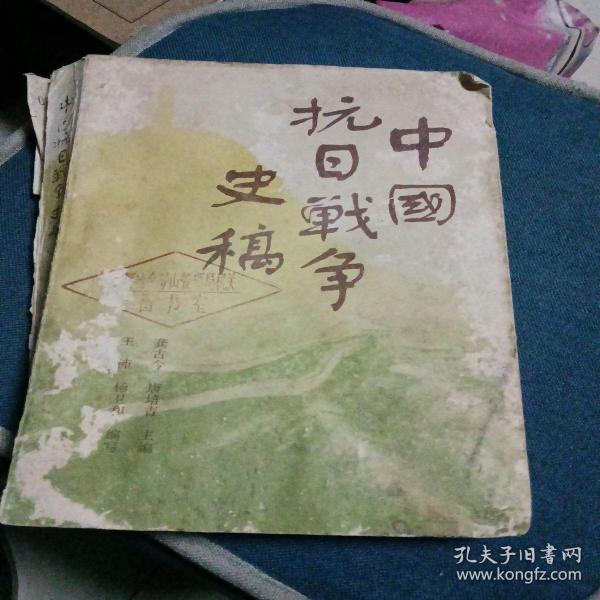 中國
抗日戦争
史稿
图书室
龚古今 唐培吉 主编
王 杨卫和 编写
孔夫子旧书网
www.kongfz.com